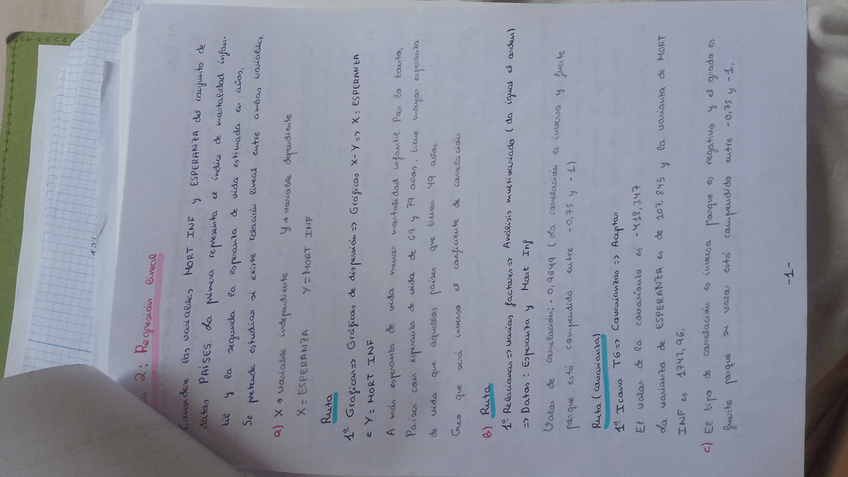 a 2: Regresión lineal
Considera las variables MORT INF y ESPERANZA del conjunto de
datos PAÍSES. La primera representa el índice de mortalidad infan-
til y la segunda la esperanza de vida estimada en años.
Se pretende estudiar si existe relación lineal entre ambas variables.
a) X → variable independiente Y → variable dependiente
X = ESPERANZA Y = MORT INF
Ruta
1º Gráficas => Gráficas de dispersión => Gráficas X-Y => X: ESPERANZA
e Y = MORT INF
A más esperanza de vida menor mortalidad infantil. Por lo tanto,
Países con esperanza de vida de 69 y 79 años, tiene mayor esperanza
de vida que aquellos países que tienen 49 años.
Creo que será inverso el coeficiente de correlación
b) Ruta
1º Relacionar => varios factores => Análisis multivariado (da igual el orden)
=> Datos: Esperanza y Mort Inf
Valor de correlación: -0,9649 (la correlación es inversa y fuerte
porque está comprendida entre -0,75 y -1)
Ruta (covarianza)
1º Icono T6 => Covarianzas => Aceptar
El valor de la covarianza es -418,347
La varianza de ESPERANZA es de 107,845 y la varianza de MORT
INF es 1742,96.
c) El tipo de correlación es inversa porque es negativa y el grado es
fuerte porque su valor está comprendido entre -0,75 y -1.
-1-